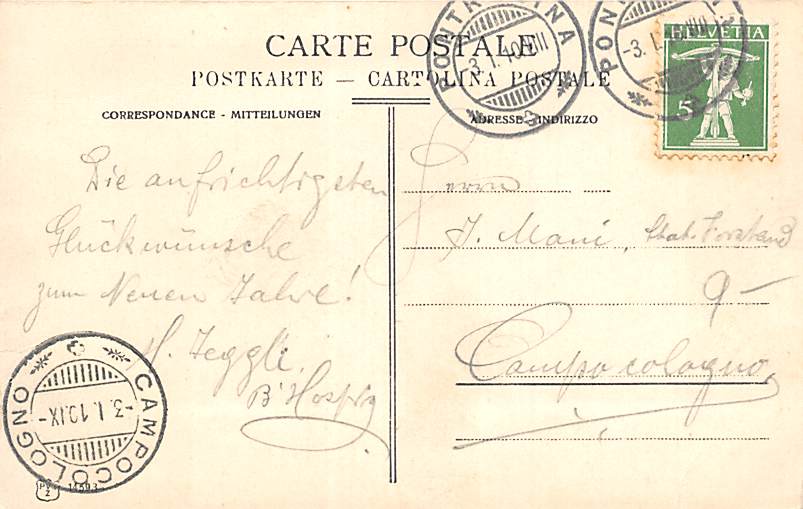 CARTE POSTALE
POSTKARTE — CARTOLINA POSTALE
CORRESPONDANCE - MITTEILUNGEN
ADRESSE - INDIRIZZO
HELVETIA
5
-3.I.10.VIII
-3.I.10.VIII
Die aufrichtigsten
Glückwünsche
zum Neuen Jahre!
H. Zeggli
B'Hospiz
Herrn
J. Mani, Stat. Vorstand
Campocologno
CAMPOCOLOGNO
-3.I.10.IX-
PV
Z
14593